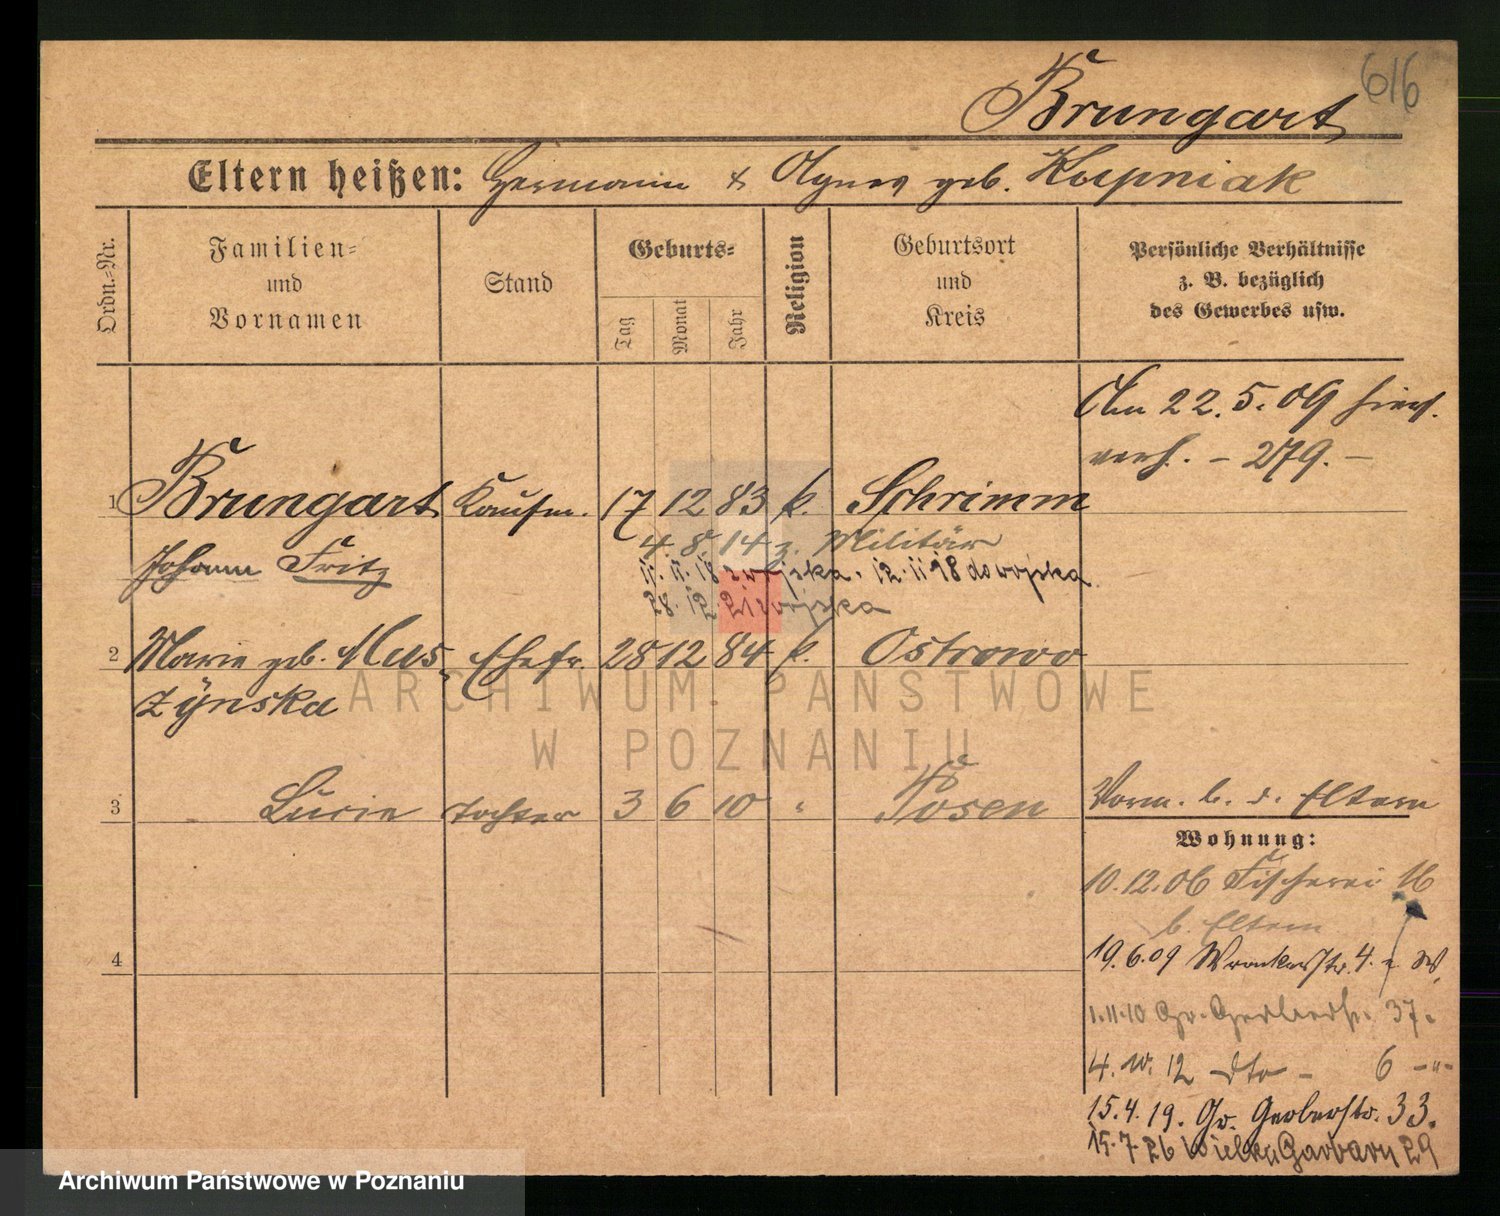 616
Brungart
Eltern heißen: Hermann & Agnes geb. Kupniak
Ordn.-Nr.
Familien-
und
Vornamen
Stand
Geburts-
Tag
Monat
Jahr
Religion
Geburtsort
und
Kreis
Persönliche Verhältnisse
z. B. bezüglich
des Gewerbes usw.
Am 22.5.09 hier
verh. - 279. -
1 Brungart Kaufm. 17 12 83 k. Schrimm
Johann Fritz
4. 8. 14 z. Militär
11. 11. 18 z wojska. 12. 11 18 do wojska
28. 12. 21 wojska
2 Marie geb. Mus Ehefr. 28 12 84 k. Ostrowo
zÿnska
3 Lucie Tochter 3 6 10 " Posen
Vorm. b. d. Eltern
Wohnung:
10.12.06 Fischerei 16
b. Eltern
4
19.6.09 Wronkerstr. 4.
1.11.10 Gr. Gerberstr. 37.
4. 10. 12 dto - 6 -"-
15.4.19. Gr. Gerberstr. 33.
15.7 26 Wielkie Garbary 29
ARCHIWUM PAŃSTWOWE
W POZNANIU
Archiwum Państwowe w Poznaniu